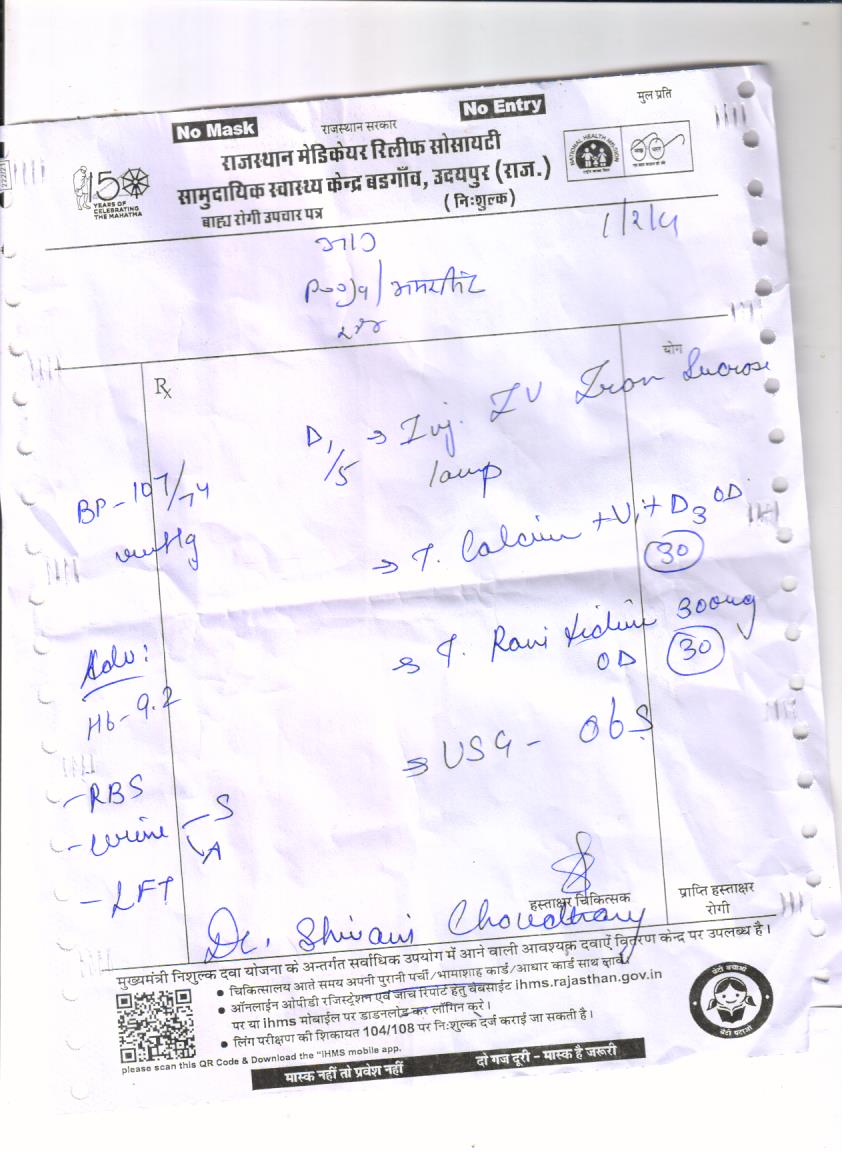 No Mask
No Entry
मुल प्रति
राजस्थान सरकार
राजस्थान मेडिकेयर रिलीफ सोसायटी
सामुदायिक स्वास्थ्य केन्द्र बडगाँव, उदयपुर (राज.)
(निःशुल्क)
बाह्य रोगी उपचार पत्र
150
YEARS OF
CELEBRATING
THE MAHATMA
NATIONAL HEALTH MISSION
Pooja /
योग
Rx
D1/5 → Inj. IV Iron Sucrose
1 amp
BP - 107/74
mmHg
→ T. Calcium + Vit D3 OD
30
→ T. Ranitidine 300mg
OD 30
Adv:
Hb - 9.2
→ USG - Obs
- RBS
- Urine - S
A
- LFT
हस्ताक्षर चिकित्सक
प्राप्ति हस्ताक्षर
रोगी
Dr. Shivani Choudhary
मुख्यमंत्री निशुल्क दवा योजना के अन्तर्गत सर्वाधिक उपयोग में आने वाली आवश्यक दवाऐं वितरण केन्द्र पर उपलब्ध है।
• चिकित्सालय आते समय अपनी पुरानी पर्ची/भामाशाह कार्ड/आधार कार्ड साथ लावें।
• ऑनलाईन ओपीडी रजिस्ट्रेशन एवं जांच रिपोर्ट हेतु वेबसाईट ihms.rajasthan.gov.in
पर या ihms मोबाईल पर डाडनलोड कर लॉगिन करे।
• लिंग परीक्षण की शिकायत 104/108 पर निःशुल्क दर्ज कराई जा सकती है।
please scan this QR Code & Download the "IHMS mobile app.
मास्क नहीं तो प्रवेश नहीं
दो गज दूरी - मास्क है जरूरी
बेटी बचाओ
बेटी पढ़ाओ